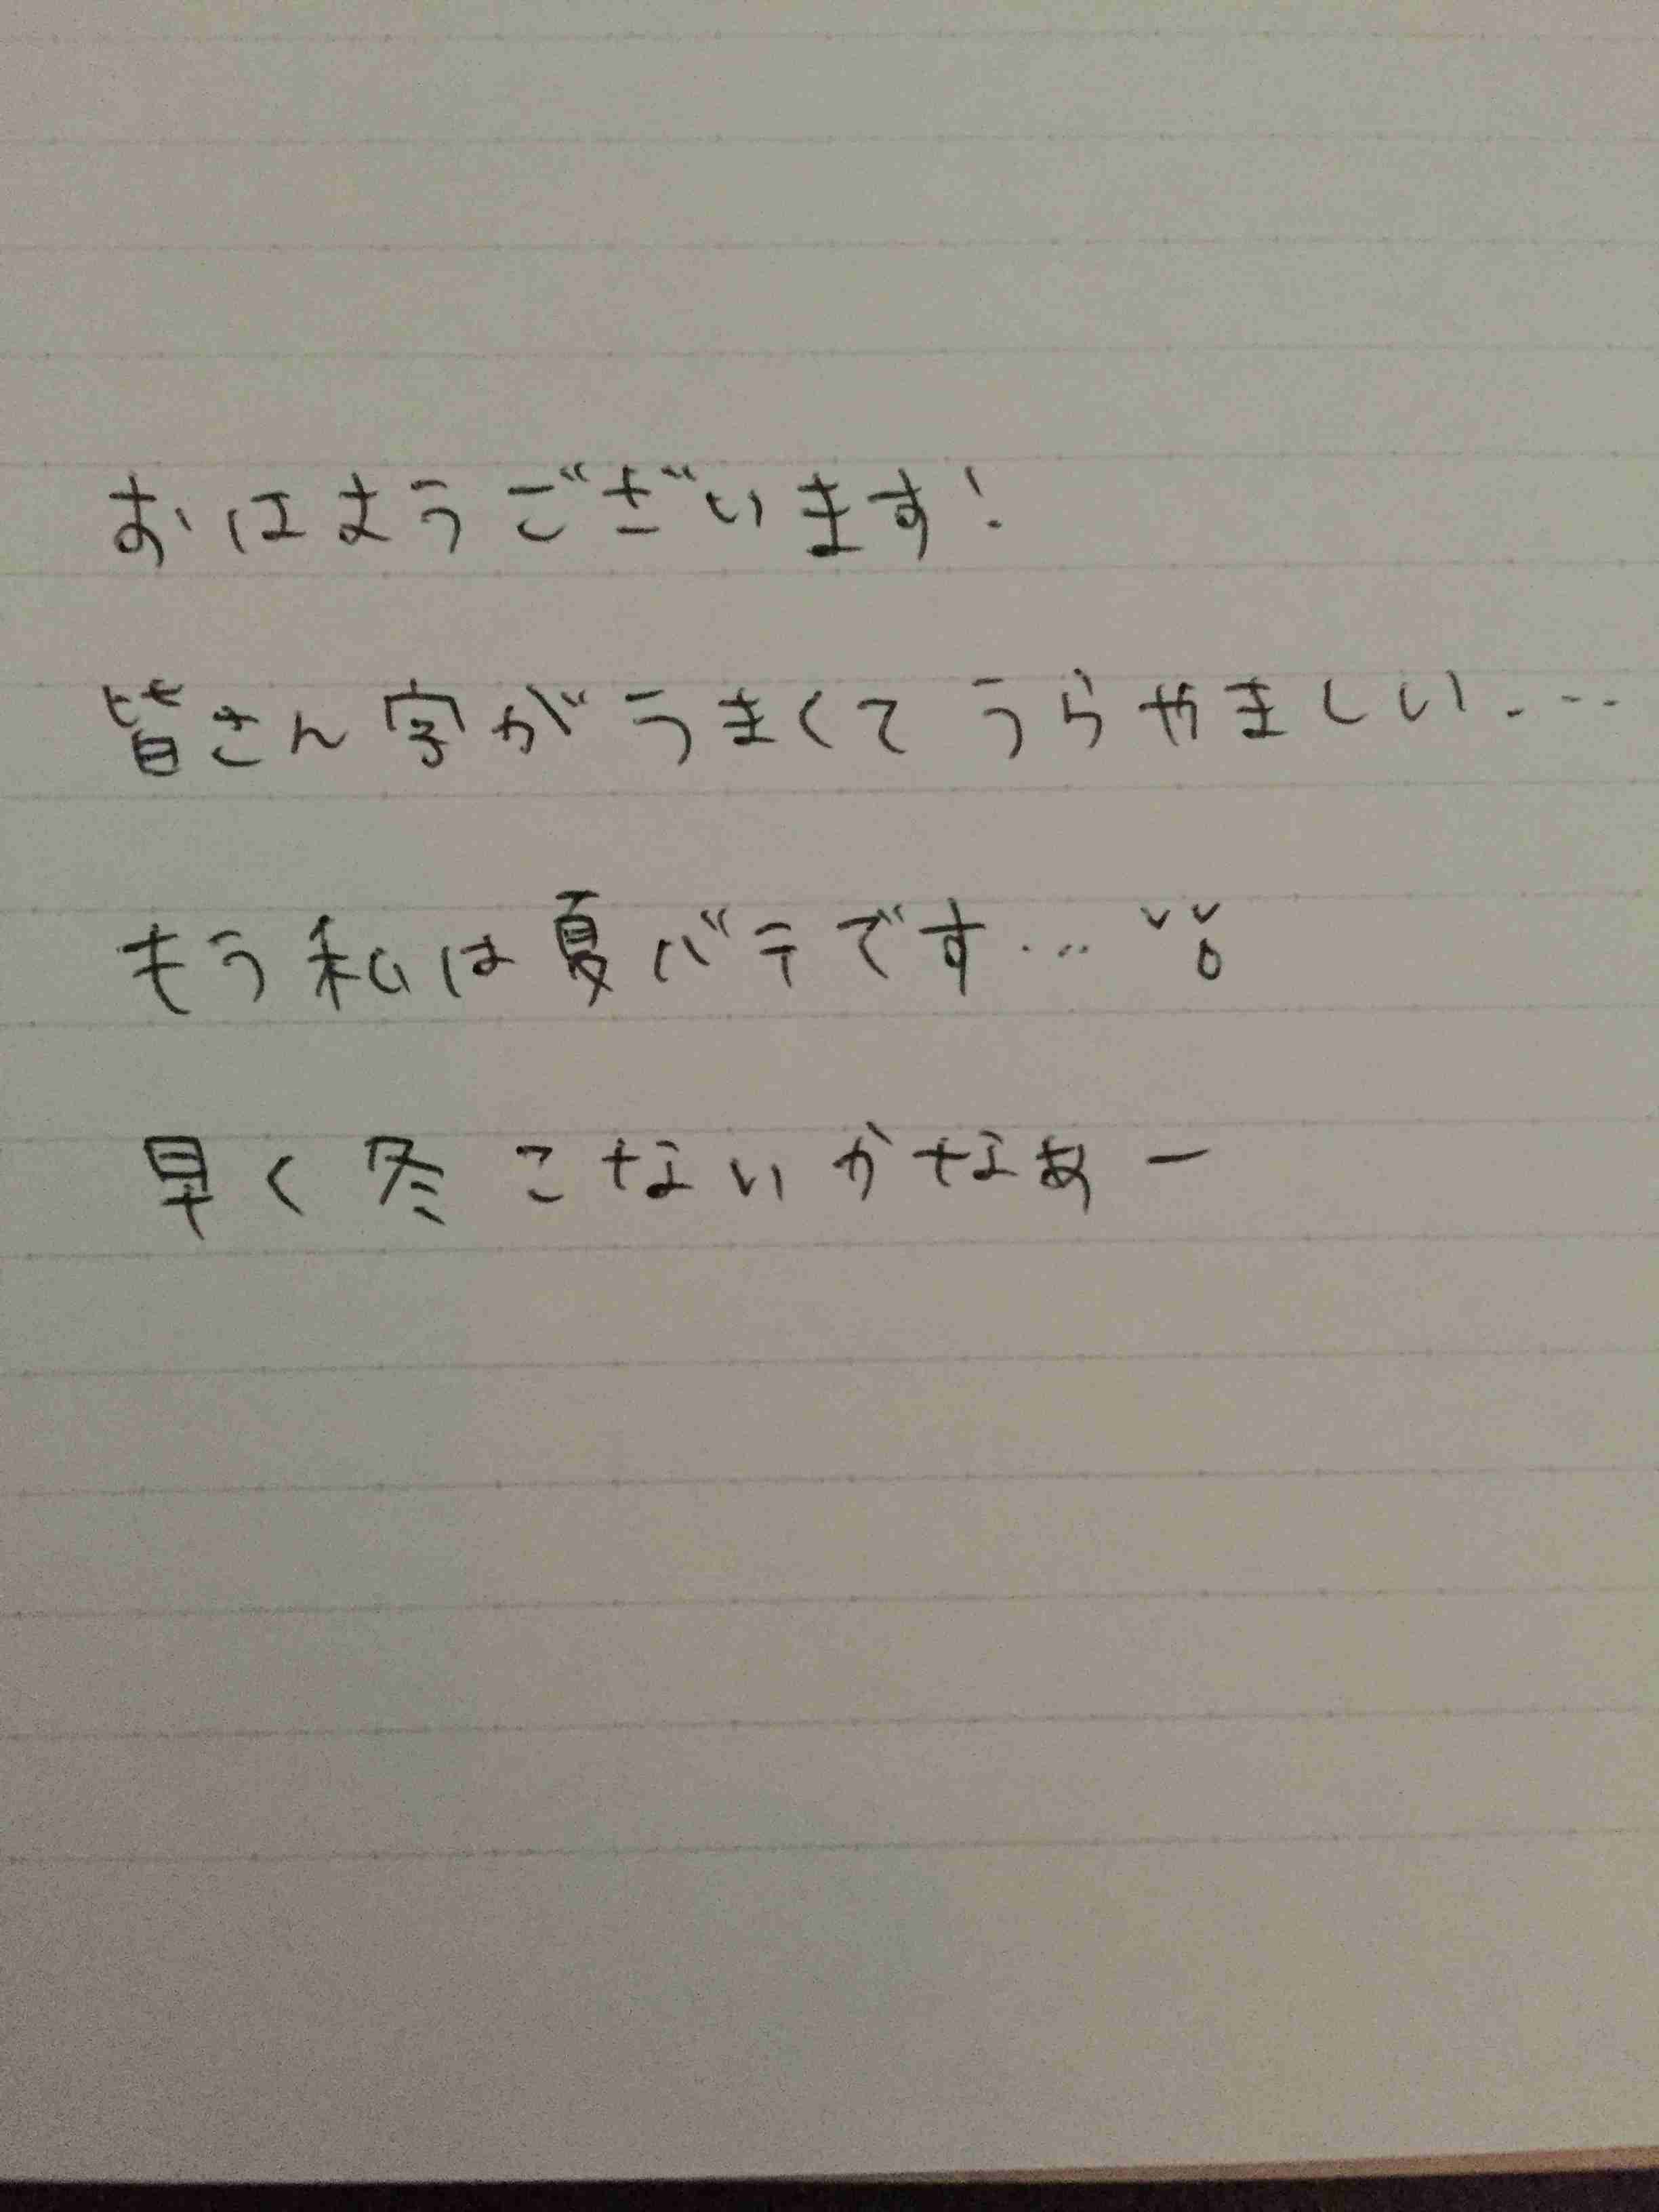 おはようございます!
皆さん字がうまくてうらやましい...
もう私は夏バテです...
早く冬こないかなぁー